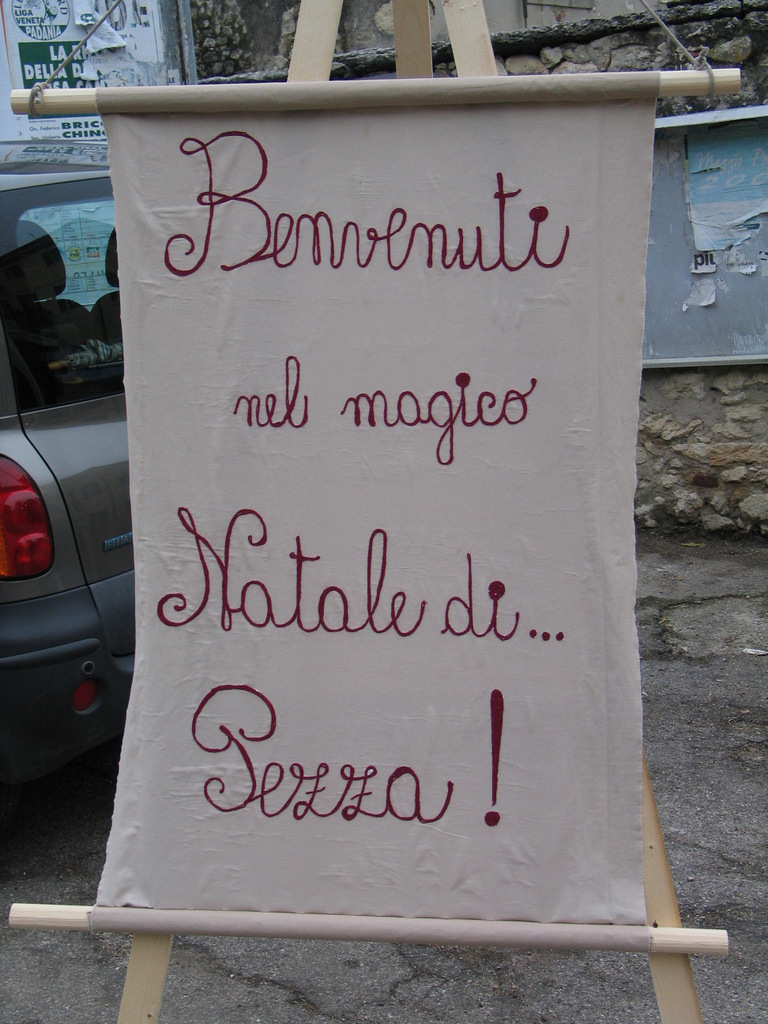 LIGA
VENETA
PADANIA
LA
DELLA
BRICO
CHINO
Benvenuti
nel magico
Natale di...
Pezza!
più